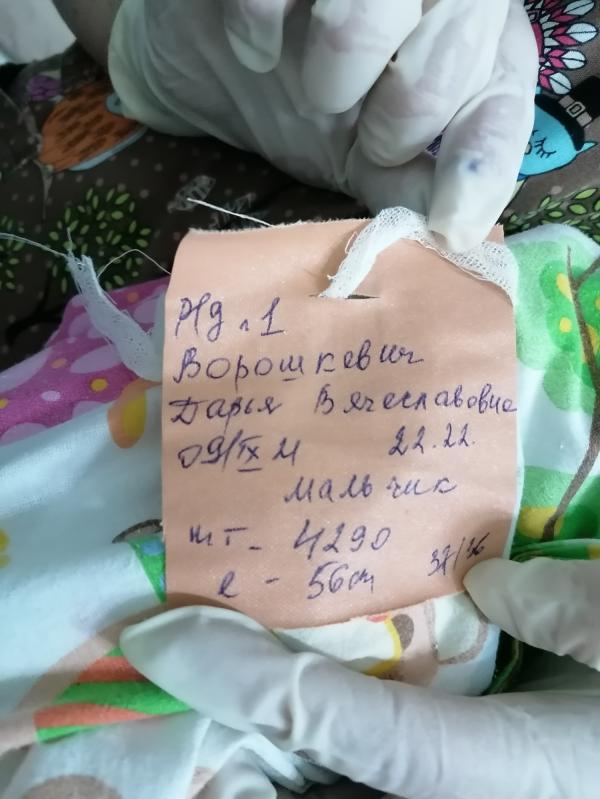 Ворошкевич
Дарья Вячеславовна
09/IX 21 22.22.
мальчик
mт - 4290
l - 56cm 37/36